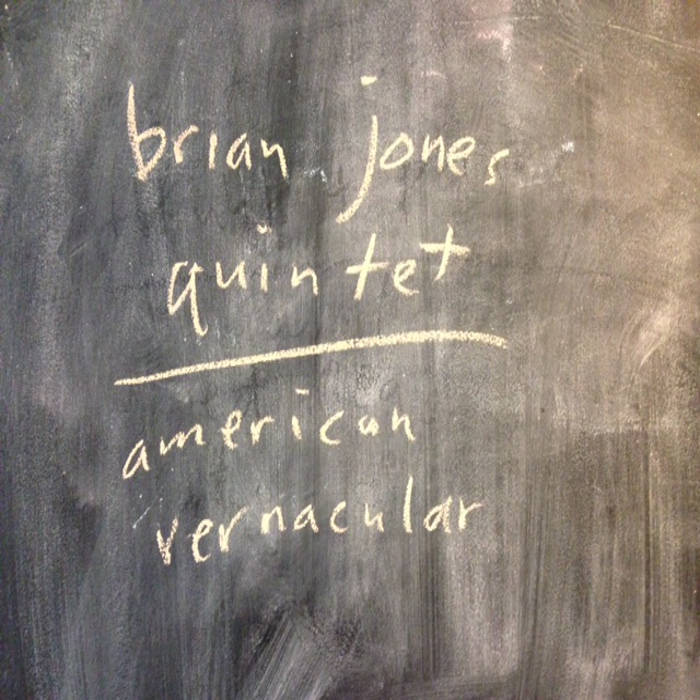 brian jones
quintet
american
vernacular